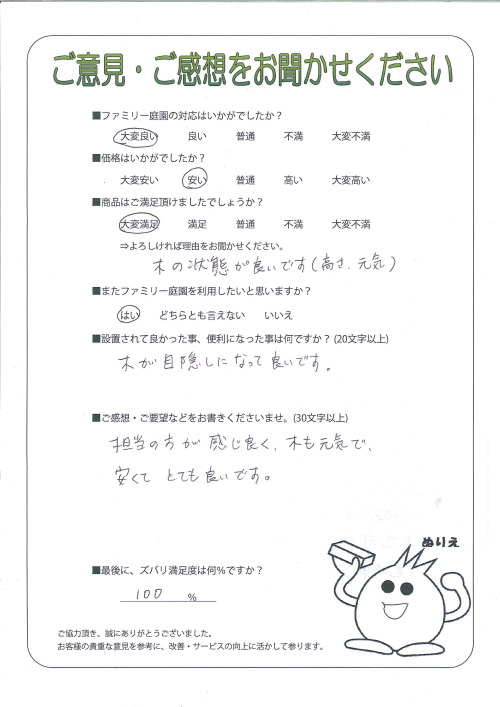 ご意見・ご感想をお聞かせください
■ファミリー庭園の対応はいかがでしたか？
大変良い 良い 普通 不満 大変不満
■価格はいかがでしたか？
大変安い 安い 普通 高い 大変高い
■商品はご満足頂けましたでしょうか？
大変満足 満足 普通 不満 大変不満
⇒よろしければ理由をお聞かせください。
木の状態が良いです(高さ、元気)
■またファミリー庭園を利用したいと思いますか？
はい どちらとも言えない いいえ
■設置されて良かった事、便利になった事は何ですか？(20文字以上)
木が目隠しになって良いです。
■ご感想・ご要望などをお書きくださいませ。(30文字以上)
担当の方が感じ良く、木も元気で、
安くてとても良いです。
ぬりえ
■最後に、ズバリ満足度は何％ですか？
100 ％
ご協力頂き、誠にありがとうございました。
お客様の貴重な意見を参考に、改善・サービスの向上に活かして参ります。